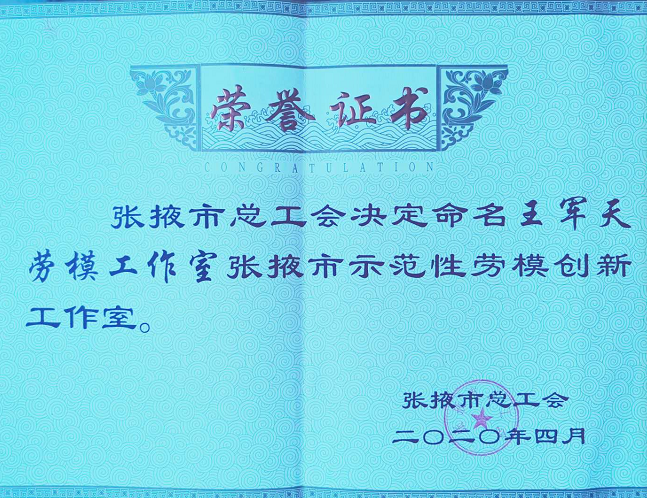 荣誉证书
CONGRATULATION
张掖市总工会决定命名王军天
劳模工作室张掖市示范性劳模创新
工作室。
张掖市总工会
二〇二〇年四月